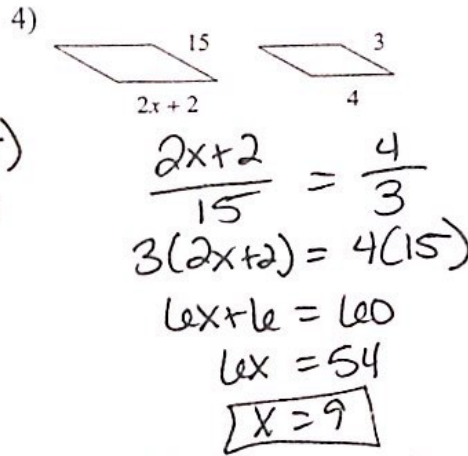 4)
15 3
2x + 2 4
)
2x+2 / 15 = 4 / 3
3(2x+2) = 4(15)
6x+6 = 60
6x = 54
x = 9